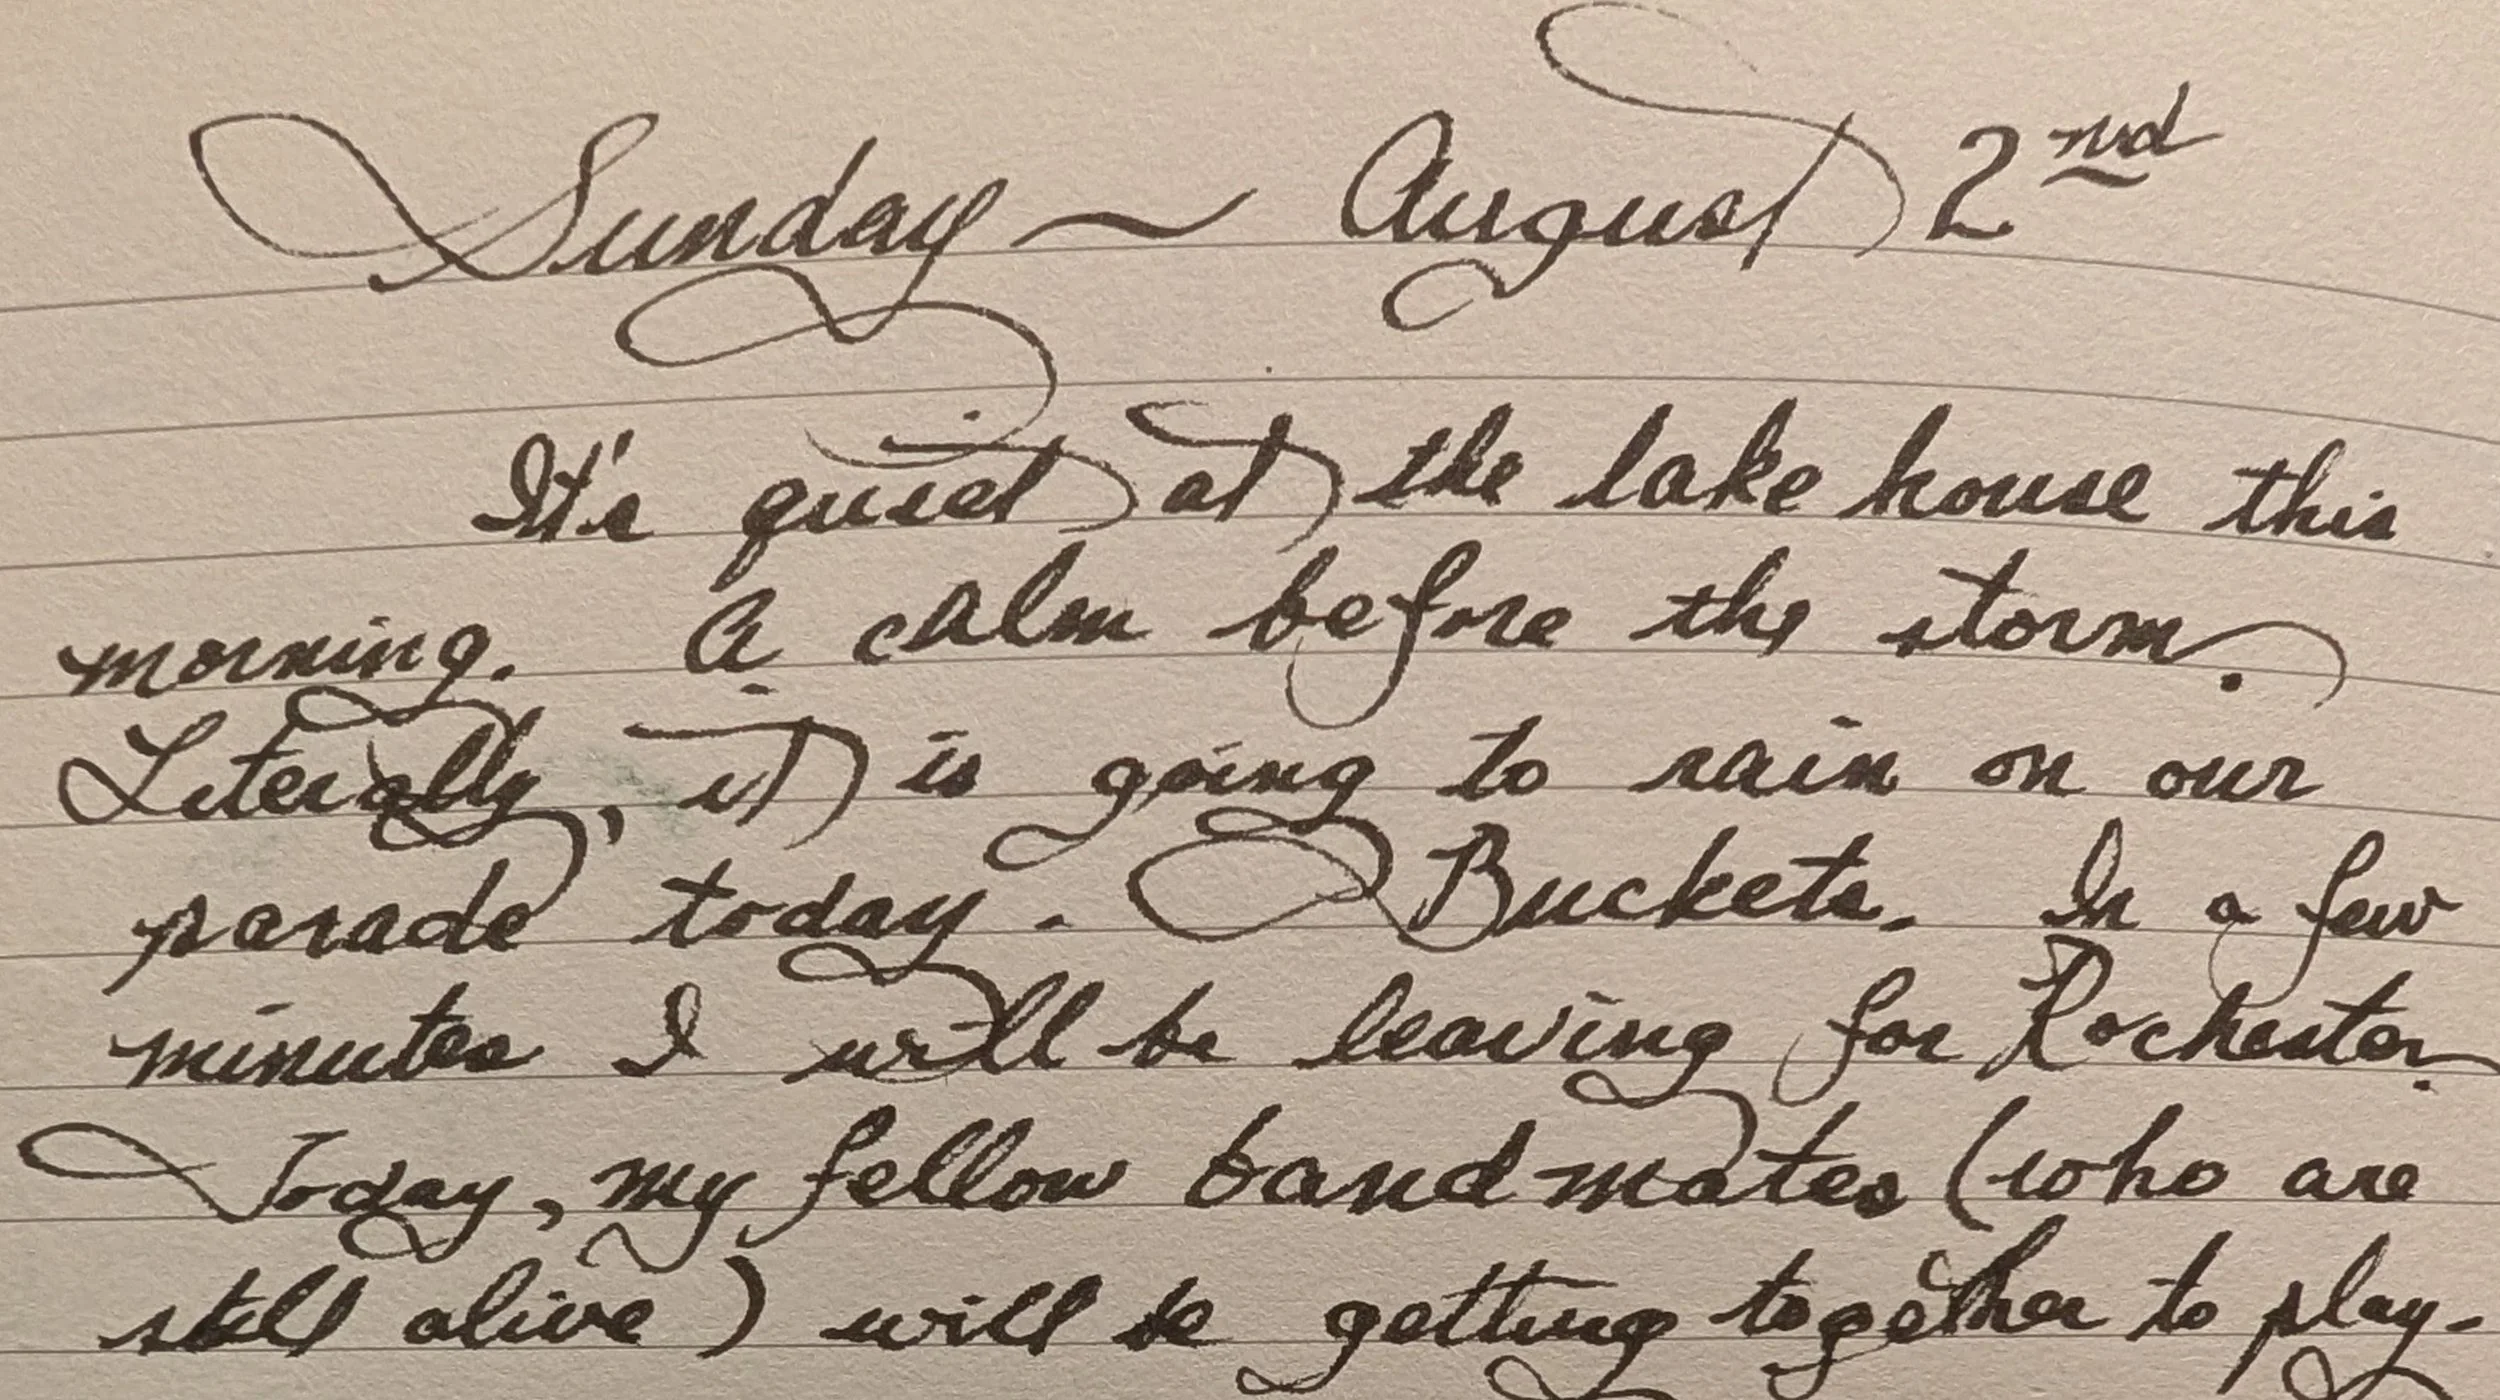 Sunday ~ August 2nd
It's quiet at the lake house this
morning. A calm before the storm.
Literally, it is going to rain on our
parade today. Buckets. In a few
minutes I will be leaving for Rochester.
Today, my fellow bandmates (who are
still alive) will be getting together to play-